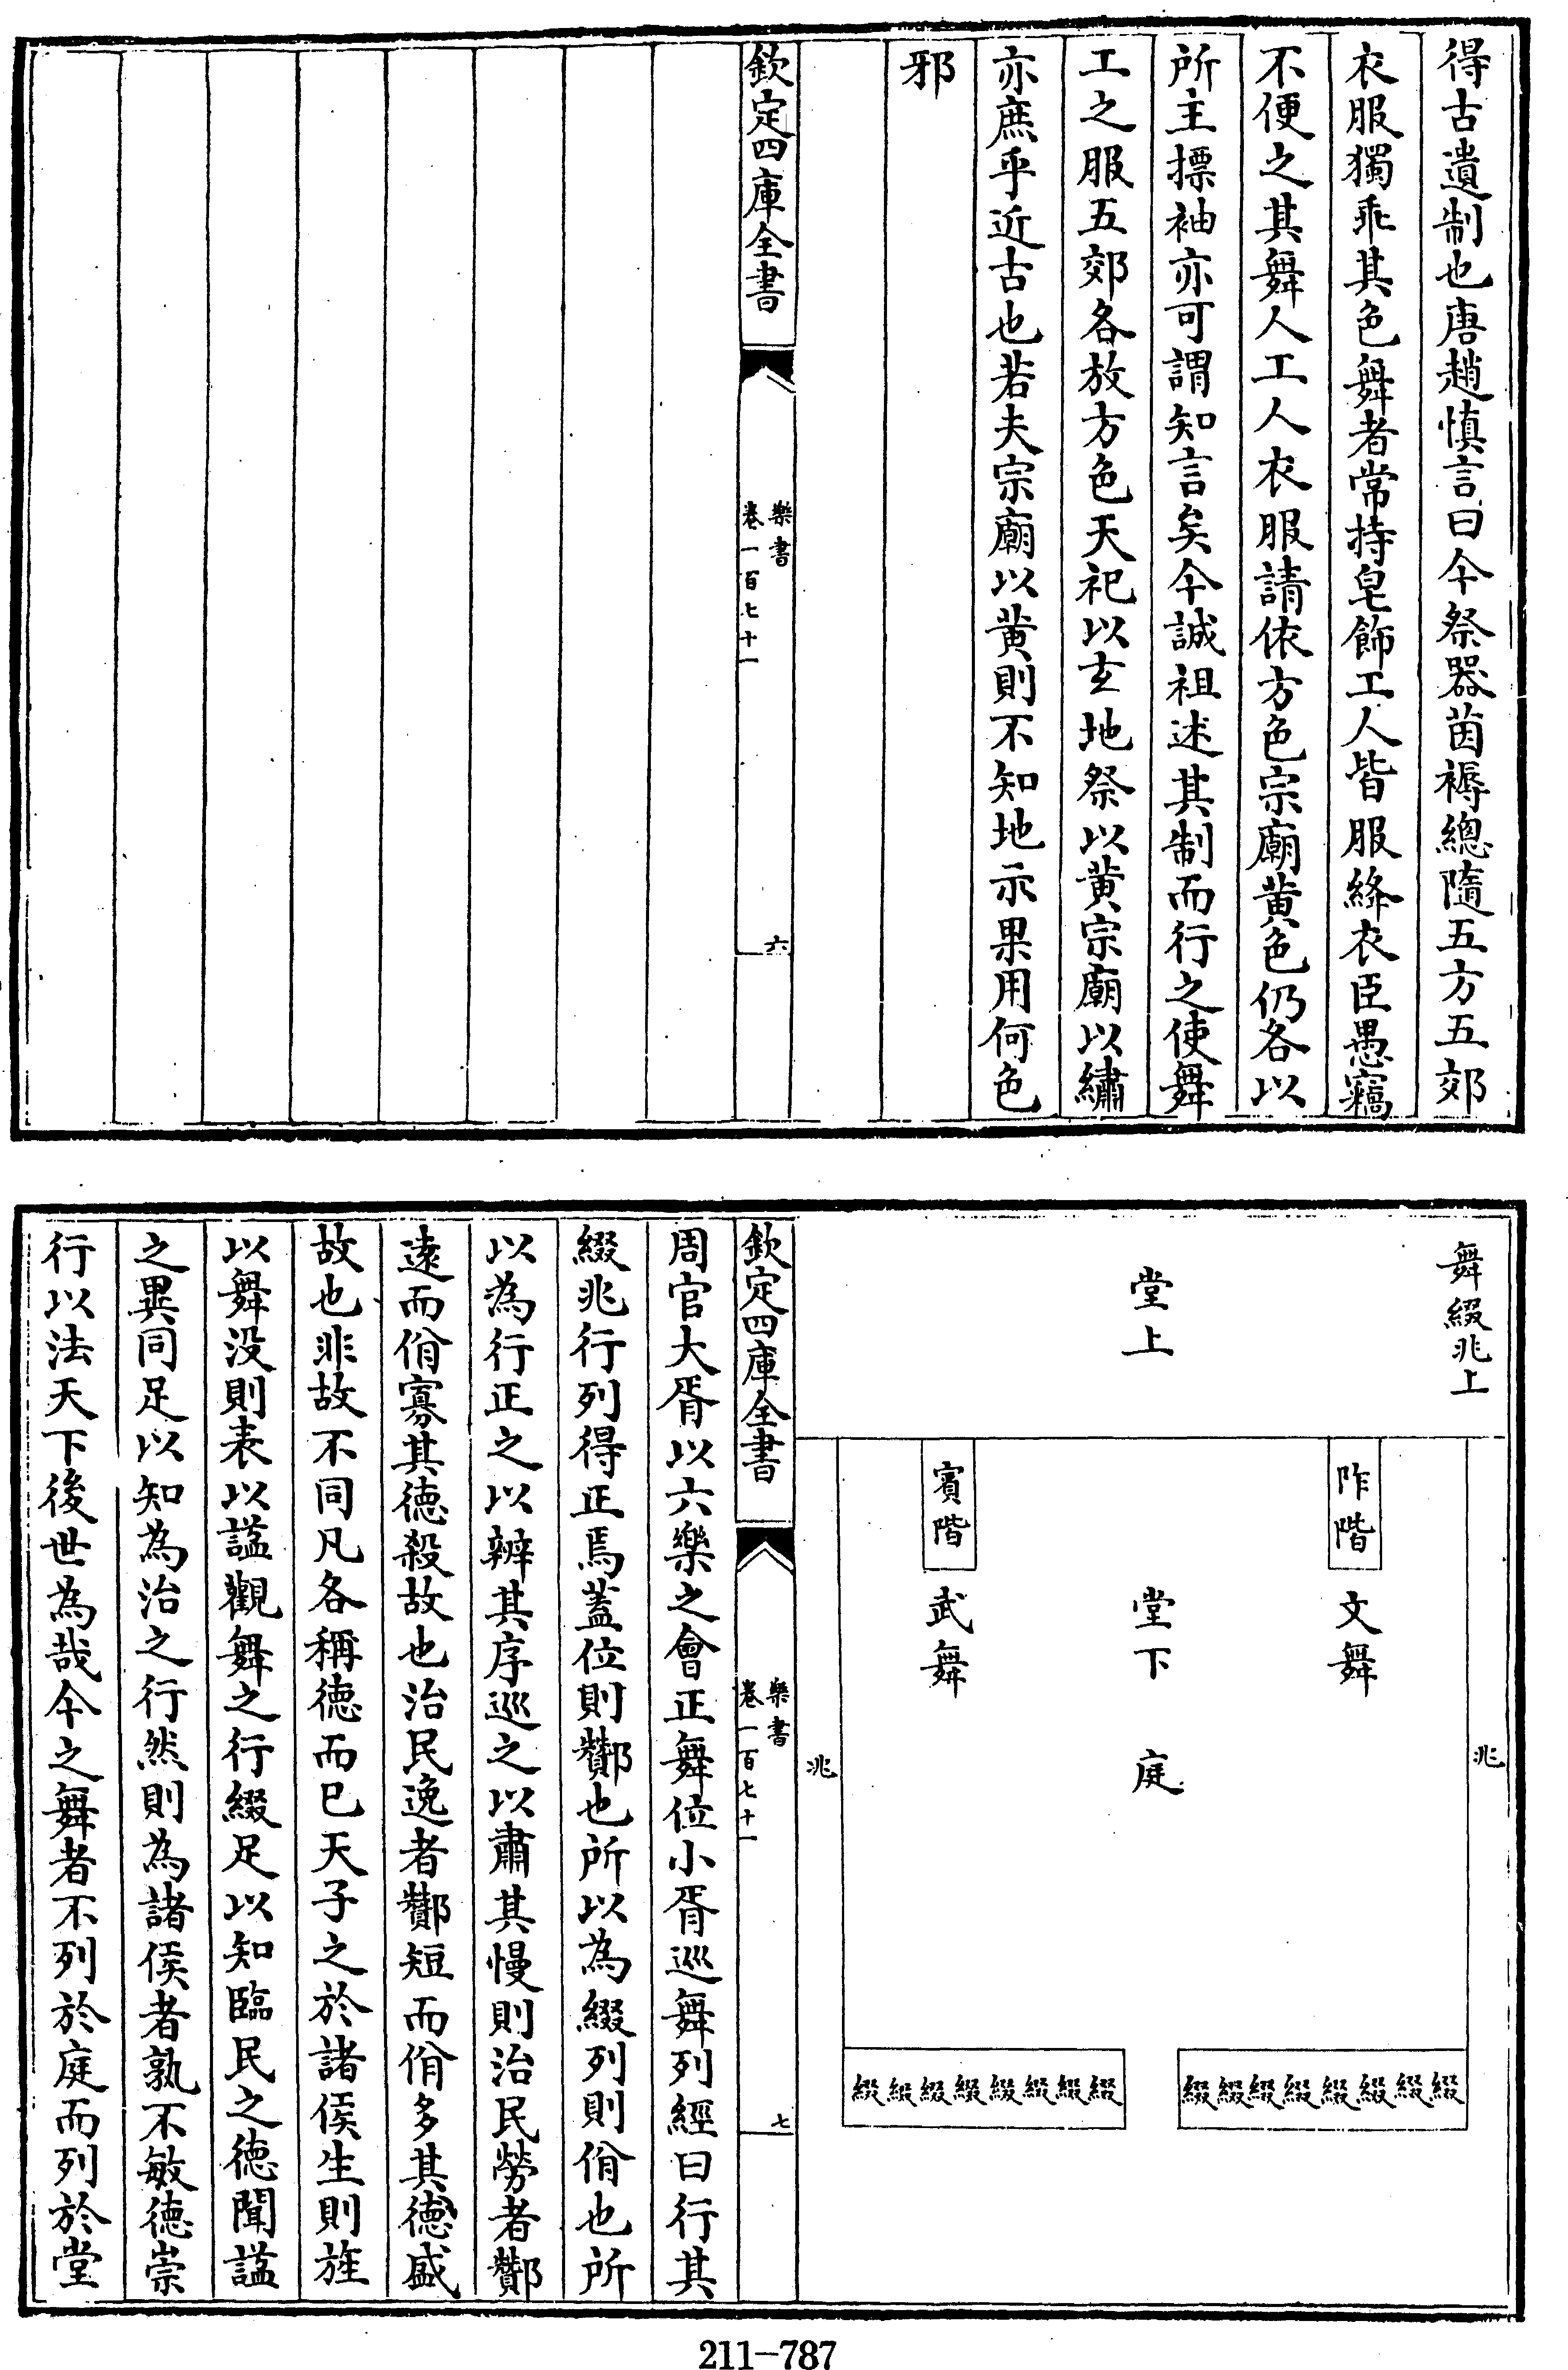 得古遺制也唐趙慎言曰今祭器茵褥總隨五方五郊
衣服獨乖其色舞者常持皂飾工人皆服絳衣臣愚竊
不便之其舞人工人衣服請依方色宗廟黄色仍各以
所主摽袖亦可謂知言矣今誠祖述其制而行之使舞
工之服五郊各放方色天祀以玄地祭以黄宗廟以繡
亦庶乎近古也若夫宗廟以黄則不知地示果用何色
邪
欽定四庫全書
樂書
卷一百七十一
六
舞綴兆上
堂上
阼階
賓階
文舞
堂下
庭
武舞
兆
兆
綴綴綴綴綴綴綴綴
綴綴綴綴綴綴綴綴
欽定四庫全書
樂書
卷一百七十一
七
周官大胥以六樂之會正舞位小胥巡舞列經曰行其
綴兆行列得正焉葢位則酇也所以為綴列則佾也所
以為行正之以辨其序巡之以肅其慢則治民勞者酇
逺而佾寡其徳殺故也治民逸者酇短而佾多其徳盛
故也非故不同凡各稱徳而已天子之於諸侯生則旌
以舞没則表以諡觀舞之行綴足以知臨民之徳聞諡
之異同足以知為治之行然則為諸侯者孰不敏徳崇
行以法天下後世為哉今之舞者不列於庭而列於堂
211-787